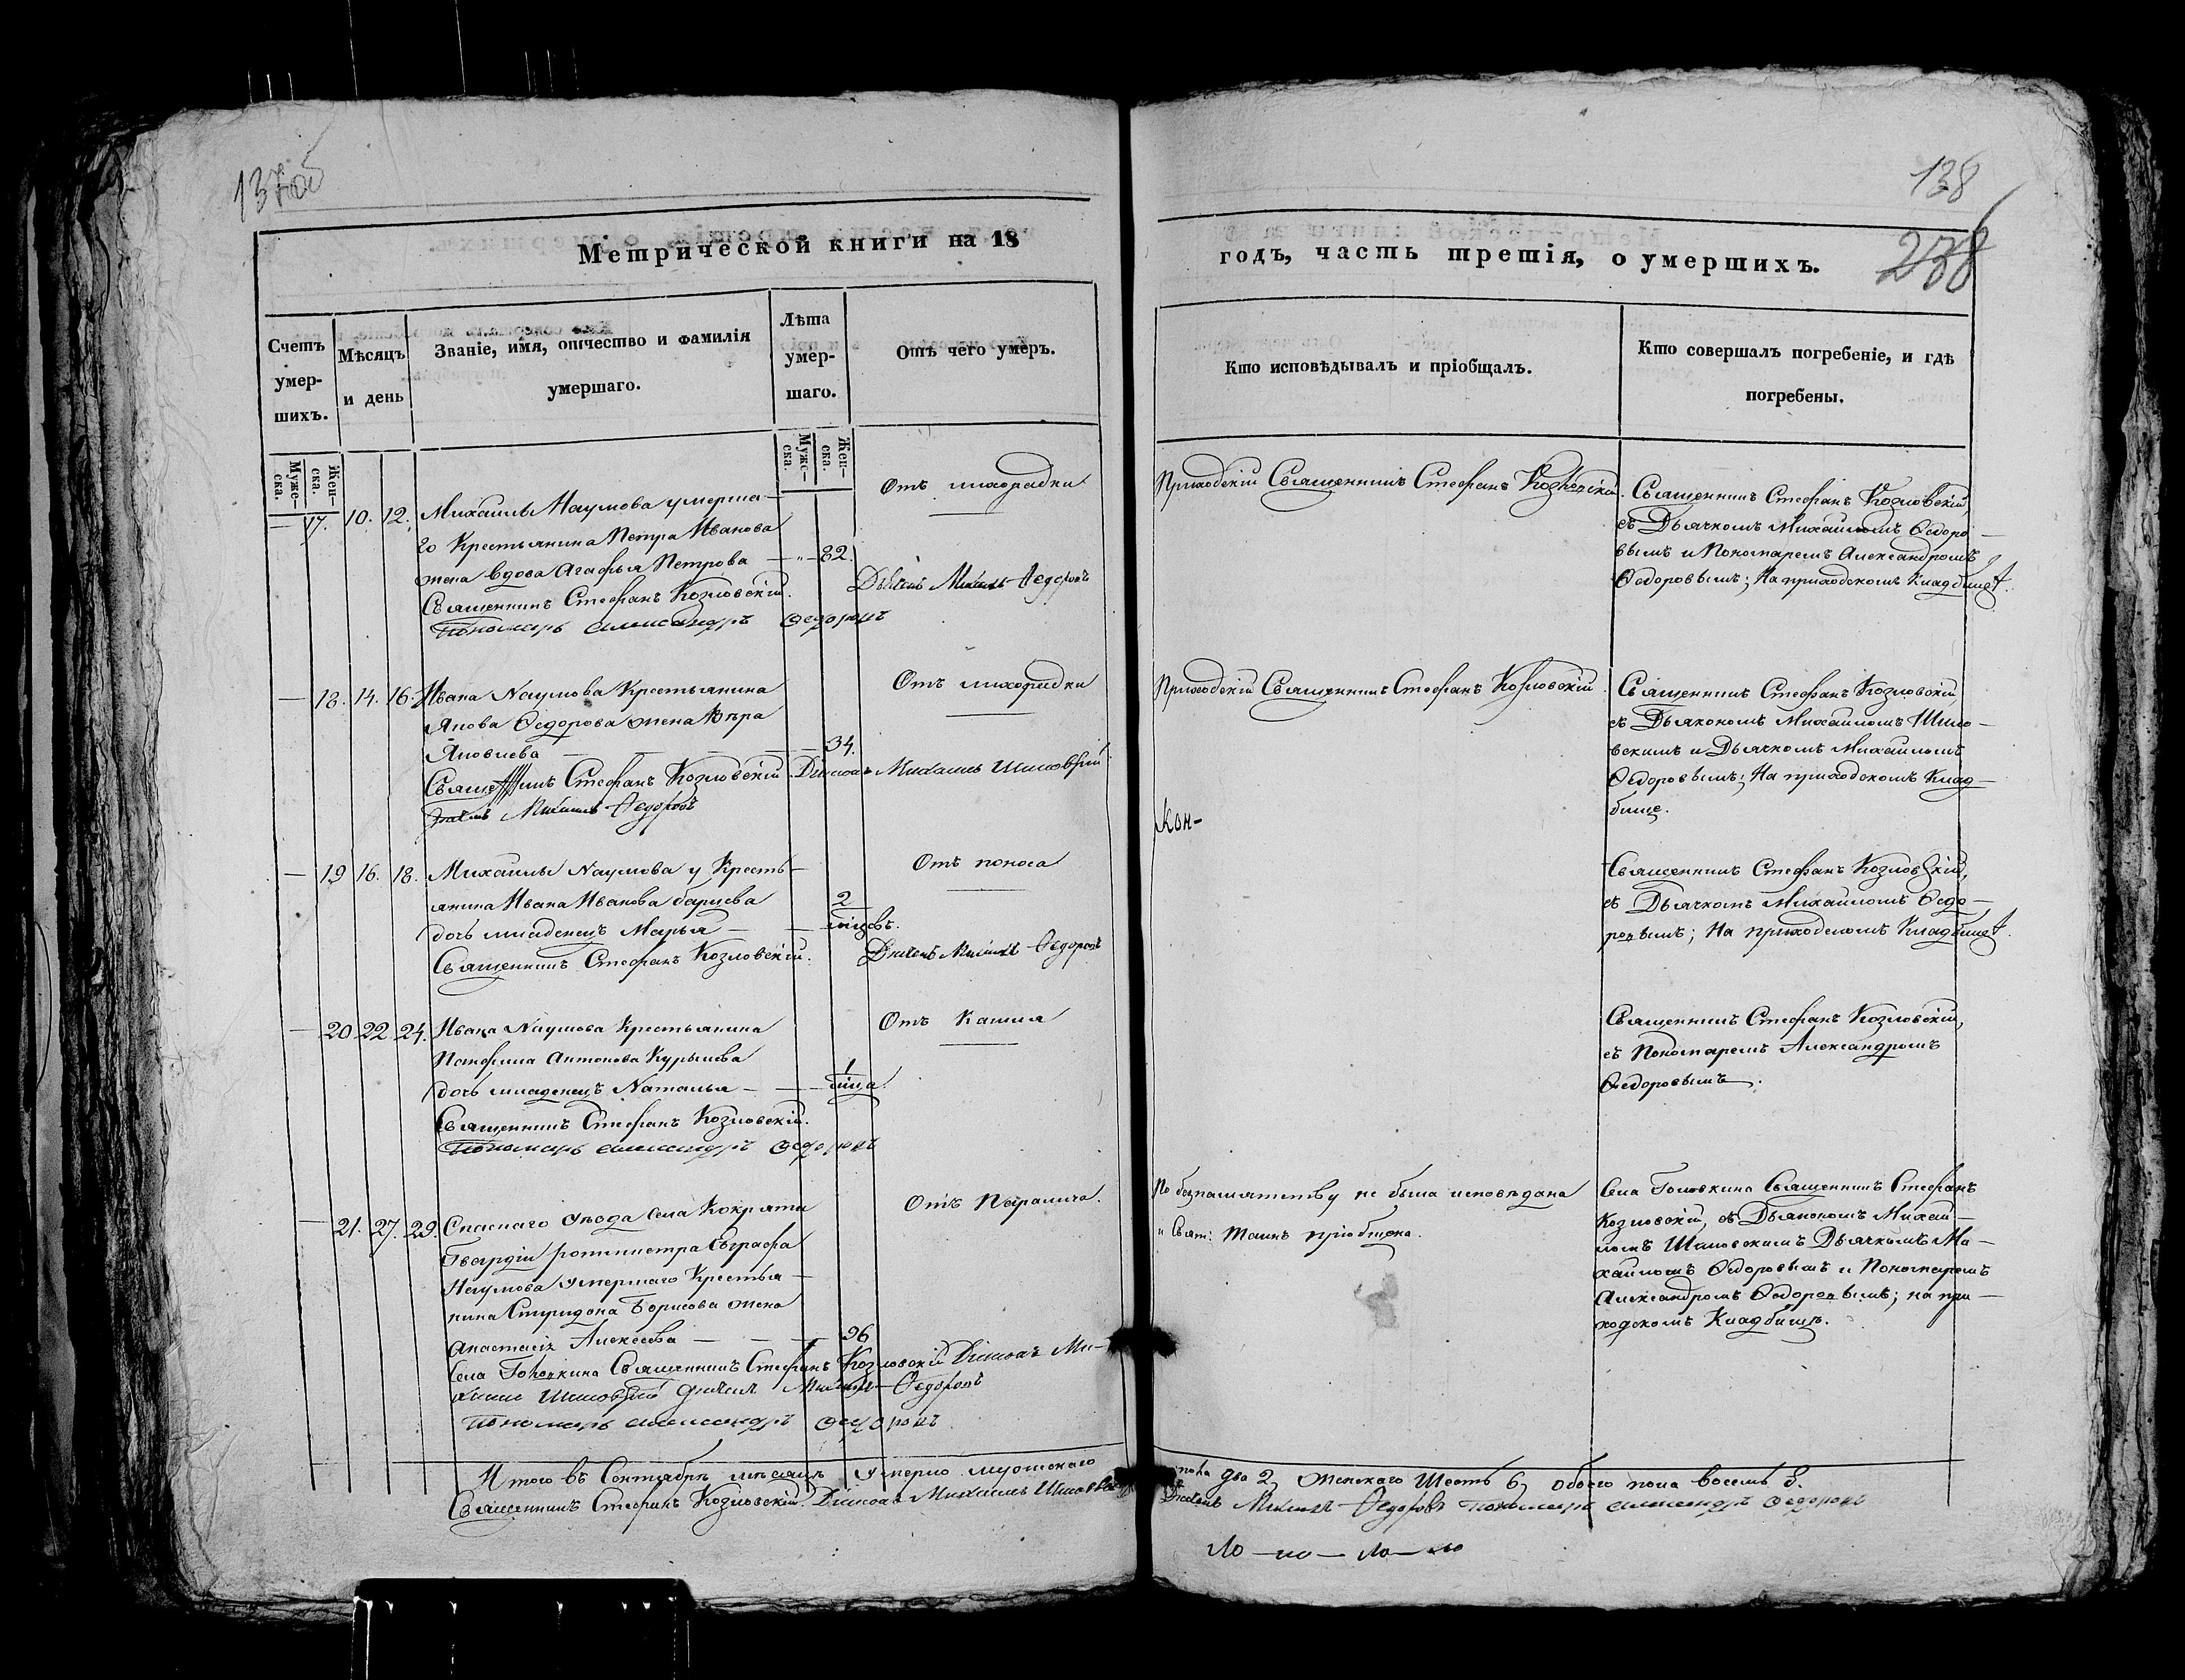 137об
Метрической книги на 18
Счетъ умер-шихъ.
Мѣсяцъ и день
Званіе, имя, отчество и фамилія умершаго.
Лѣта умер-шаго.
Отъ чего умеръ.
Муже-ска.
Жен-ска.
Муже-ска.
Жен-ска.
— 17. 10. 12. Михаилы Наумова умерша-
го Крестьянина Петра Иванова
жена вдова Агафья Петрова — „ — 82.
Отъ лихорадки
Священникъ Стефанъ Козловскій. Дьячекъ Михаилъ Федоровъ
Пономарь Александръ Федоровъ
— 18. 14. 16. Ивана Наумова Крестьянина
Якова Федорова жена Вѣра
Яковлева — 34.
Отъ лихорадки
Священникъ Стефанъ Козловскій. Діаконъ Михаилъ Шиловскій
Дьячекъ Михаилъ Федоровъ
— 19 16. 18. Михаилы Наумова у Кресть-
янина Ивана Иванова
дочь младенецъ Марья — 2 мѣсцовъ.
Отъ поноса
Священникъ Стефанъ Козловскій. Дьячекъ Михаилъ Федоровъ
— 20 22 24. Ивана Наумова Крестьянина
Памфила Антонова Курылева
дочь младенецъ Наталья — 1 мѣсца.
Отъ Кашля
Священникъ Стефанъ Козловскій.
Пономарь Александръ Федоровъ
— 21. 27. 29. Спаскаго уѣзда села Кокряти
Гвардіи ротмистра Евграфа
Наумова умершаго Крестья-
нина Спиридона Борисова жена
Анастасія Алексеева — 96
Отъ Паралича.
Села Головкина Священникъ Стефанъ Козловскій Діаконъ Ми-
хаилъ Шиловскій Дьячекъ Михаилъ Федоровъ
Пономарь Александръ Федоровъ
Итого въ Сентябрѣ мѣсяцѣ умерло мужскаго
Священникъ Стефанъ Козловскій. Діаконъ Михаилъ Шиловскій
138
238
годъ, часть третія, о умершихъ.
Кто исповѣдывалъ и пріобщалъ.
Кто совершалъ погребеніе, и гдѣ погребены.
Приходскій Священникъ Стефанъ Козловскій.
Священникъ Стефанъ Козловскій
съ Дьячкомъ Михаиломъ Федоро-
вымъ и Пономаремъ Александромъ
Федоровымъ; На приходскомъ Кладбищѣ.
Приходскій Священникъ Стефанъ Козловскій.
Священникъ Стефанъ Козловскій
съ Дьякономъ Михаиломъ Шило-
вскимъ и Дьячкомъ Михаиломъ
Федоровымъ; На приходскомъ Клад-
бище.
Кон-
Священникъ Стефанъ Козловскій,
съ Дьячкомъ Михаиломъ Федо-
ровымъ; На приходскомъ Кладбищѣ.
Священникъ Стефанъ Козловскій,
съ Пономаремъ Александромъ
Федоровымъ.
По безпамятству не была исповѣдана
и Свят: Таинъ пріобщена.
Села Головкина Священникъ Стефанъ
Козловскій, съ Дьякономъ Михаи-
ломъ Шиловскимъ Дьячкомъ Ми-
хаиломъ Федоровымъ и Пономаремъ
Александромъ Федоровымъ; на при-
ходскомъ Кладбищѣ.
пола два 2, женскаго Шесть 6, обоего пола восемь 8.
Дьячекъ Михаилъ Федоровъ Пономарь Александръ Федоровъ
ло — ло — ло — ло